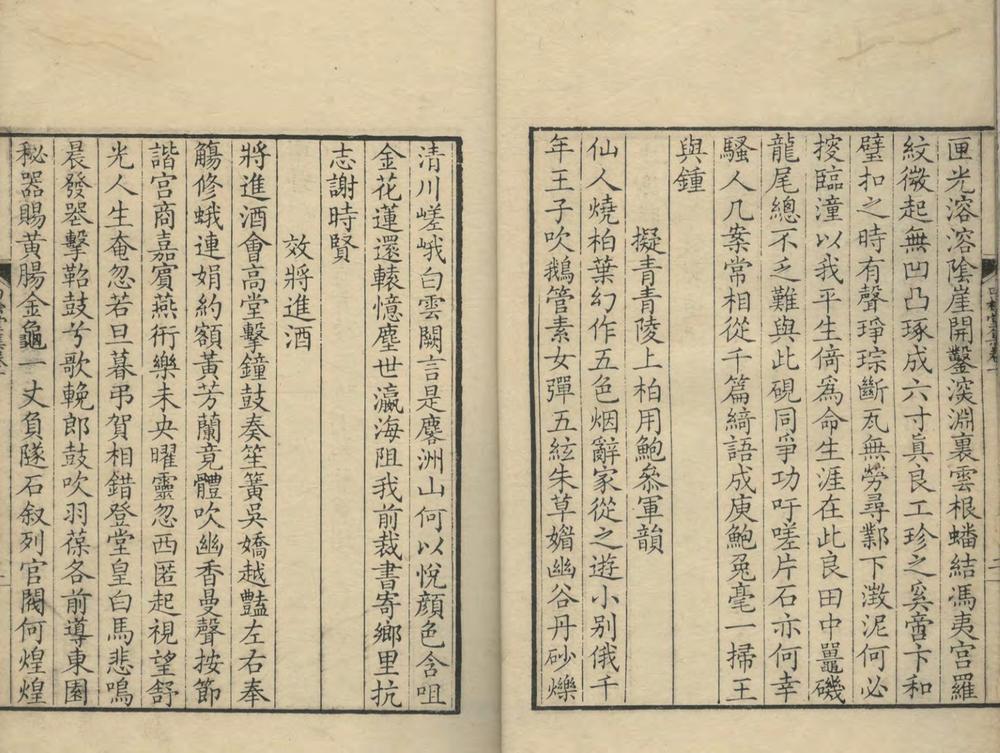 匣光溶溶陰崖開鑿深淵裏雲根蟠結馮夷宮羅
紋微起無凹凸琢成六寸真良工珍之奚啻卞和
璧扣之時有聲琤琮斷瓦無勞尋鄴下澂泥何必
挍臨潼以我平生倚爲命生涯在此良田中鼉磯
龍尾總不乏難與此硯同爭功吁嗟片石亦何幸
騷人几案常相從千篇綺語成庾鮑兔毫一掃王
與鍾
擬青青陵上柏用鮑叅軍韻
仙人燒柏葉幻作五色烟辭家從之遊小別俄千
年王子吹鵝管素女彈五絃朱草媚幽谷丹砂爍
清川嵯峨白雲闕言是麐洲山何以悅顔色含咀
金花蓮還轅憶塵世瀛海阻我前裁書寄鄉里抗
志謝時賢
效將進酒
將進酒會高堂擊鐘鼓奏笙簧吳嬌越豔左右奉
觴修蛾連娟約額黃芳蘭竟體吹幽香曼聲按節
諧宮商嘉賓燕衎樂未央曜靈忽西匿起視望舒
光人生奄忽若旦暮弔賀相錯登堂皇白馬悲鳴
晨發器擊鞀鼓兮歌輓郎鼓吹羽葆各前導東園
秘器賜黃腸金龜一丈負隧石叙列官閥何煌煌